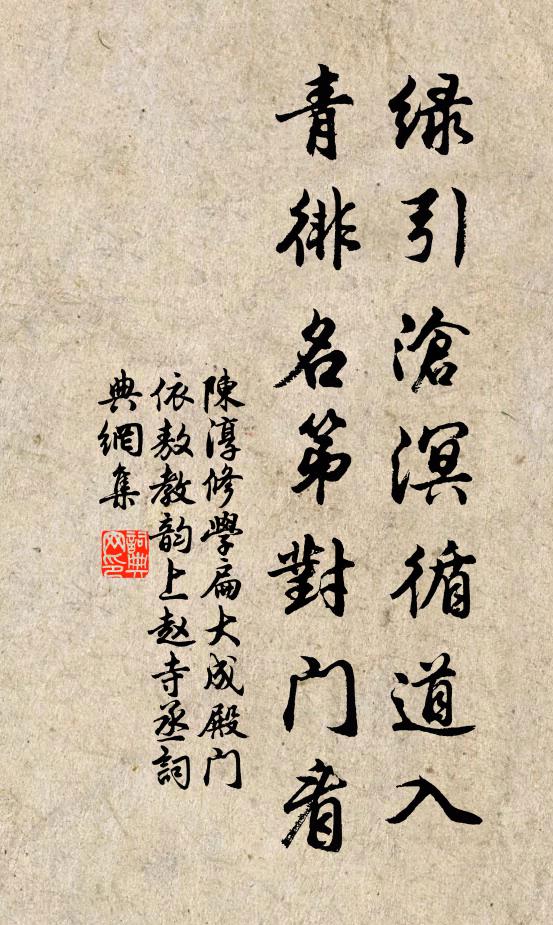 绿引滄溟循道入
青徘名第對门看
陳淳修學扁大成殿门
依敖教韵上赵寺丞詞
典網集
詞典网印